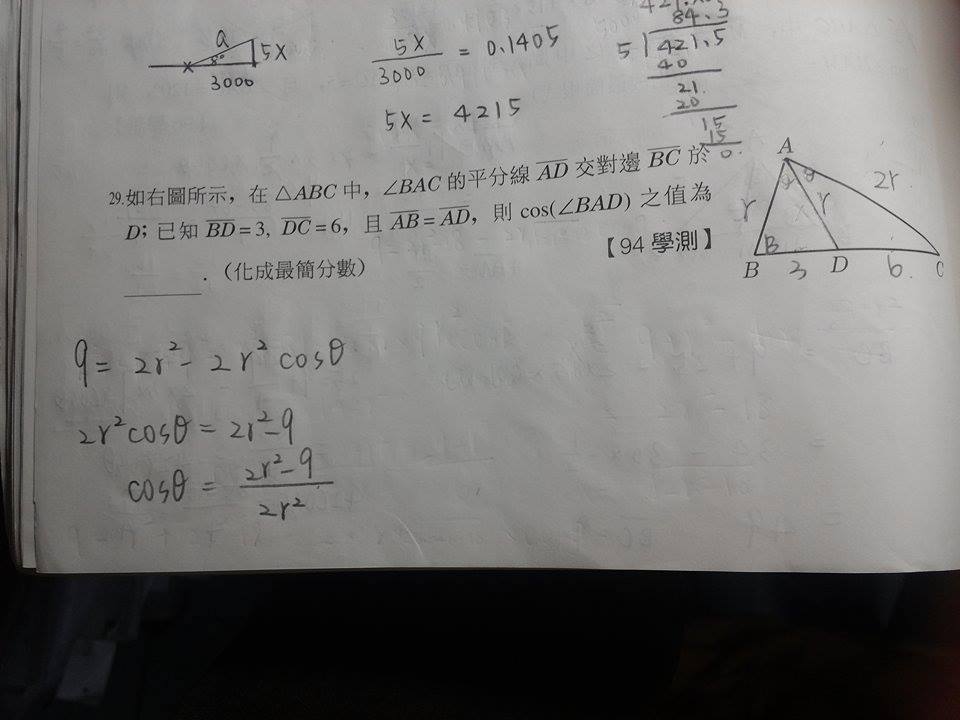 a
5x
8°
3000
5x/3000 = 0.1405
5x = 4215
84.3
5 421.5
40
21.
20
15
15
0.
29.如右圖所示，在 △ABC 中，∠BAC 的平分線 AD 交對邊 BC 於
D；已知 BD=3, DC=6，且 AB=AD，則 cos(∠BAD) 之值為
______．（化成最簡分數）
【94 學測】
A
θ θ
r r 2r
B
B 3 D 6. C
9 = 2r² - 2r² cosθ
2r² cosθ = 2r²-9
cosθ = 2r²-9/2r²